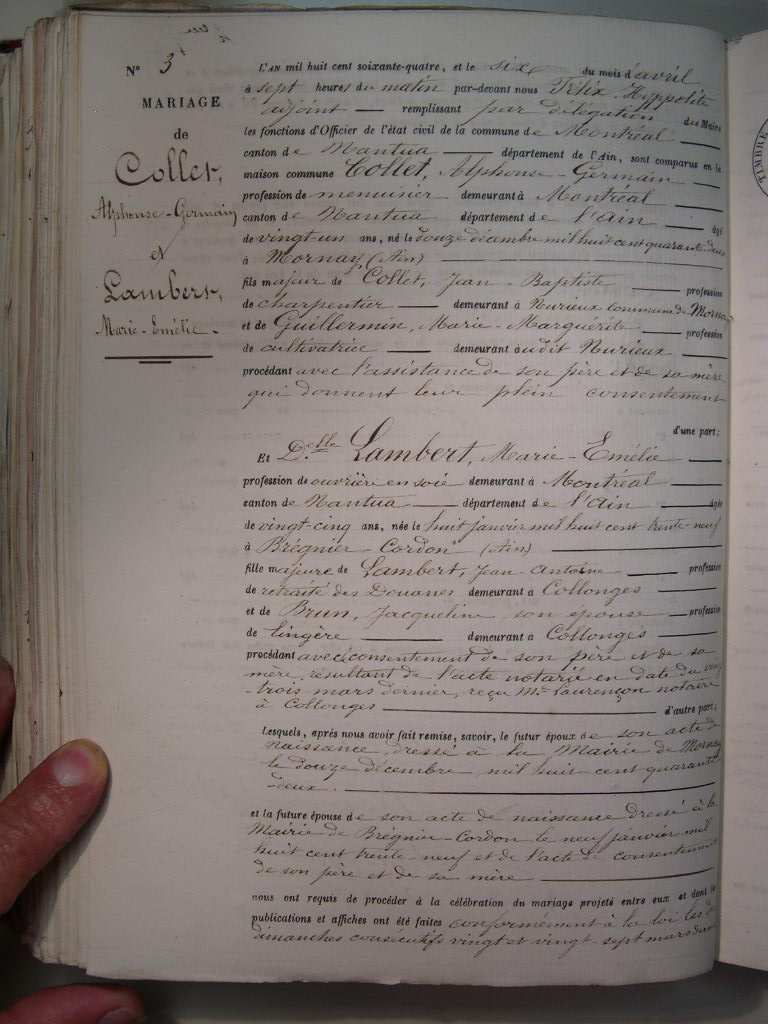 N° 3
MARIAGE
de
Collet,
Alphonse-Germain
et
Lambert,
Marie-Emélie
L'AN mil huit cent soixante-quatre, et le six du mois d'avril
à sept heures du matin par-devant nous Félix Hyppolite
adjoint remplissant par délégation du Maire
les fonctions d'Officier de l'état civil de la commune de Montréal
canton de Nantua département de l'Ain, sont comparus en la
maison commune Collet, Alphonse-Germain
profession de menuisier demeurant à Montréal
canton de Nantua département de l'ain âgé
de vingt-un ans, né le douze décembre mil huit cent quarante-deux
à Mornay (Ain)
fils majeur de Collet, Jean-Baptiste profession
de charpentier demeurant à Nurieux commune de Mornay
et de Guillermin, Marie-Marguerite profession
de cultivatrice demeurant audit Nurieux
procédant avec l'assistance de son père et de sa mère
qui donnent leur plein consentement
d'une part;
Et Delle Lambert, Marie-Emélie
profession de ouvrière en soie demeurant à Montréal
canton de Nantua département de l'ain âgée
de vingt-cinq ans, née le huit janvier mil huit cent trente-neuf
à Brégnier-Cordon (Ain)
fille majeure de Lambert, Jean-Antoine profession
de retraité des Douanes demeurant à Collonges
et de Brun, Jacqueline son epouse profession
de lingère demeurant à Collonges
procédant avec consentement de son père et de sa
mère, résultant de l'acte notarié en date du vingt
-trois mars dernier, reçu Me Laurençon notaire
à Collonges d'autre part;
Lesquels, après nous avoir fait remise, savoir, le futur époux de son acte de
naissance dressé à la Mairie de Mornay
le douze décembre mil huit cent quarante
-deux.
et la future épouse de son acte de naissance dressé à la
Mairie de Brégnier-Cordon le neuf janvier mil
huit cent trente-neuf et de l'acte de consentement
de son père et de sa mère
nous ont requis de procéder à la célébration du mariage projeté entre eux et dont les
publications et affiches ont été faites conformément à la loi les
dimanches consécutifs vingt et vingt-sept mars
TIMBRE